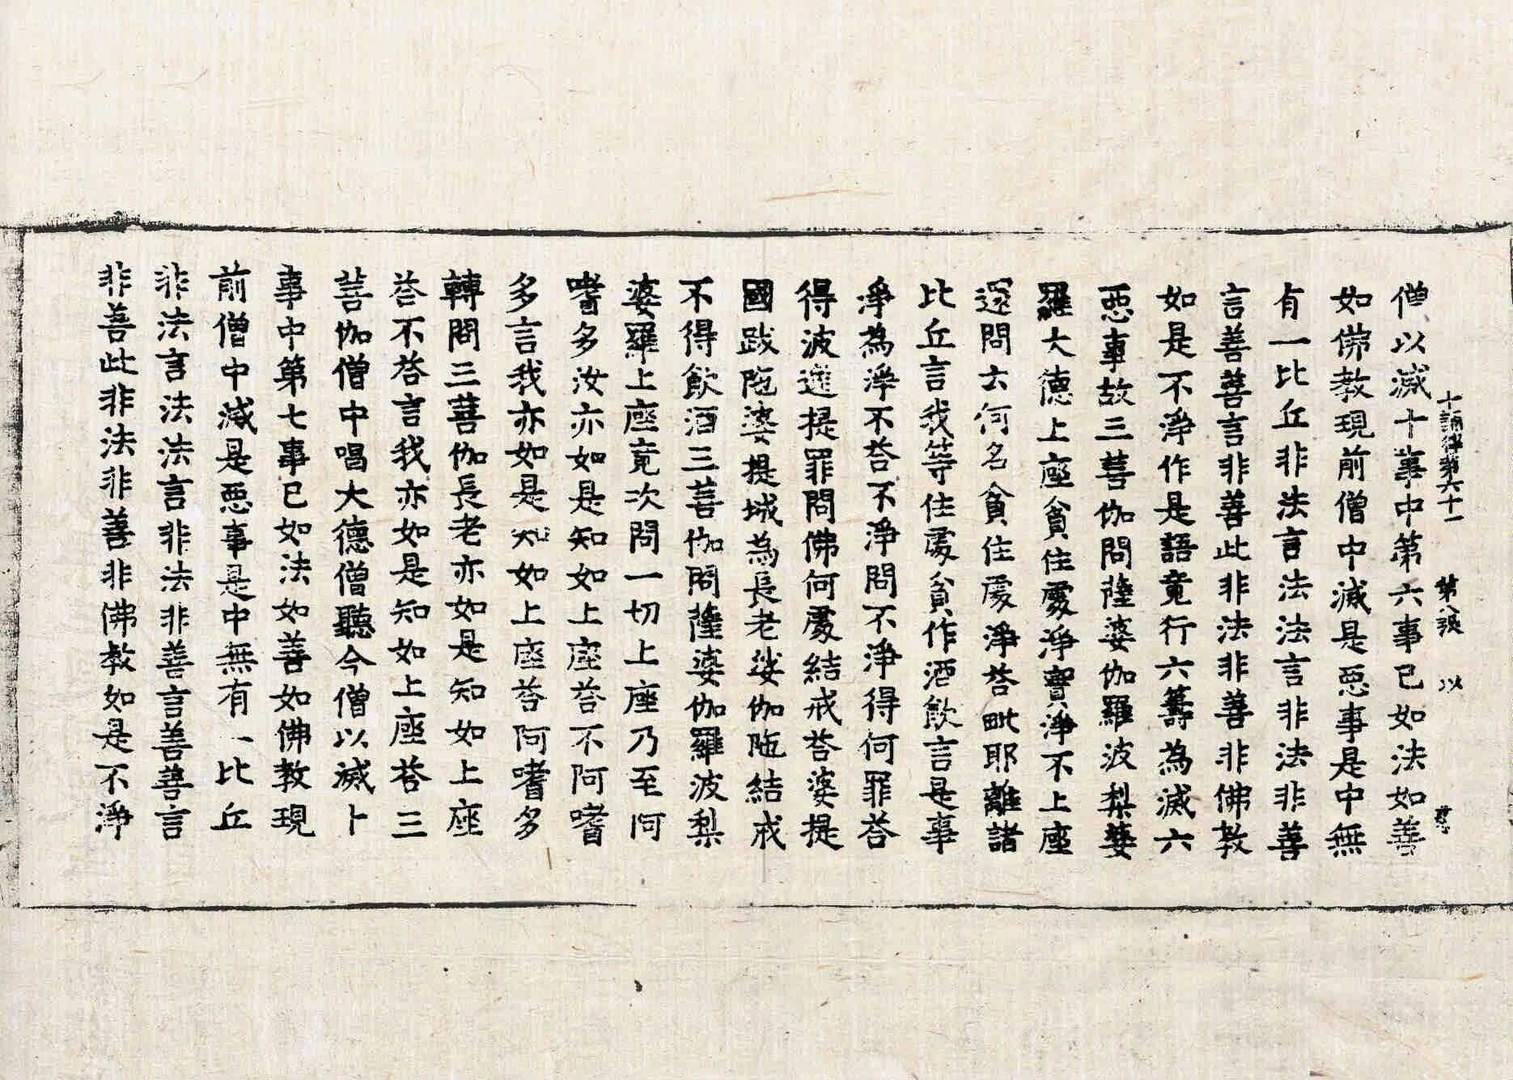 十誦律第六十一 第八張 以
僧以滅十事中第六事已如法如善
如佛教現前僧中滅是惡事是中無
有一比丘非法言法法言非法非善
言善善言非善此非法非善非佛教
如是不淨作是語竟行六籌為滅六
惡事故三菩伽問薩婆伽羅波梨婆
羅大德上座貧住處淨實淨不上座
還問云何名貧住處淨荅毗耶離諸
比丘言我等住處貧作酒飲言是事
淨為淨不荅不淨問不淨得何罪荅
得波逸提罪問佛何處結戒荅婆提
國跋陁婆提城為長老娑伽陁結戒
不得飲酒三菩伽問薩婆伽羅波梨
婆羅上座竟次問一切上座乃至阿
嗜多汝亦如是知如上座荅不阿嗜
多言我亦如是知如上座荅阿嗜多
轉問三菩伽長老亦如是知如上座
荅不荅言我亦如是知如上座荅三
菩伽僧中唱大德僧聽今僧以滅十
事中第七事已如法如善如佛教現
前僧中滅是惡事是中無有一比丘
非法言法法言非法非善言善善言
非善此非法非善非佛教如是不淨